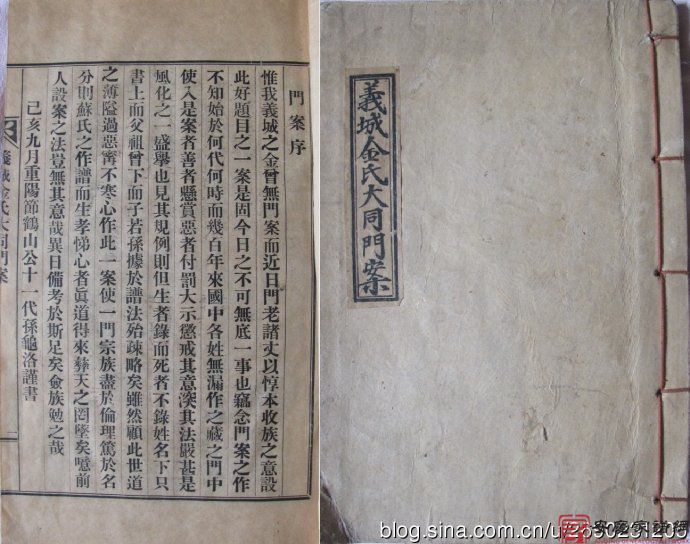 門案序
惟我義城之金曾無門案而近日門老諸丈以惇本收族之意設
此好題目之一案是固今日之不可無底一事也竊念門案之作
不知始於何代何時而幾百年來國中各姓無漏作之藏之門中
使入是案者善者懸賞惡者付罰大示懲戒其意深其法嚴甚是
風化之一盛舉也見其規例則但生者錄而死者不錄姓名下只
書上而父祖曾下而子若孫據於譜法殆疎略矣雖然顧此世道
之薄隘過惡寗不寒心作此一案使一門宗族盡於倫理篤於名
分則蘇氏之作譜而生孝悌心者眞道得來彝天之罔墜矣噫前
人設案之法豈無其意哉異日備考於斯足矣僉族勉之哉
己亥九月重陽節鶴山公十一代孫龜洛謹書
義城金氏大同門案
義城金氏大同門案
家譜網